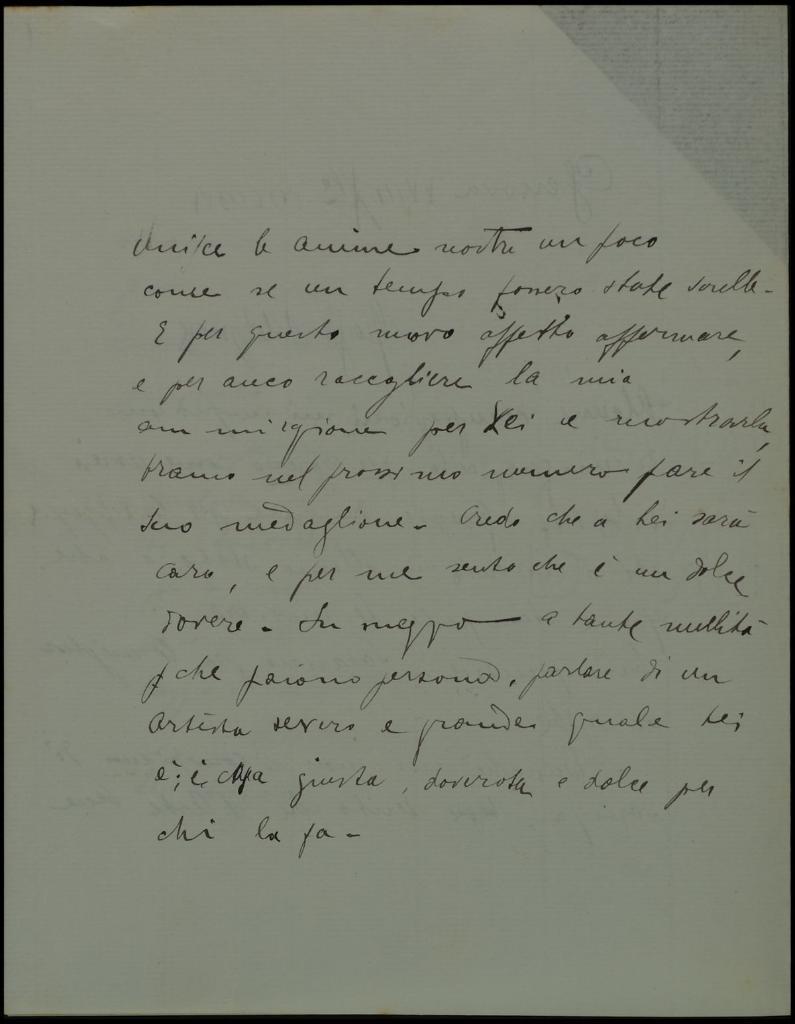 Unisce le anime nostre un foco
come se un tempo fossero state sorelle -
E per questo nuovo affetto affermare,
e per anco raccogliere la mia
ammirazione per Lei e mostrarla,
bramo nel prossimo numero fare il
suo medaglione - Credo che a Lei sarà
caro, e per me sento che è un dolce
dovere - In mezzo a tante nullità
che paiono persone, parlare di un
artista severo e grande quale Lei
è; è cosa giusta, doverosa e dolce per
chi la fa -